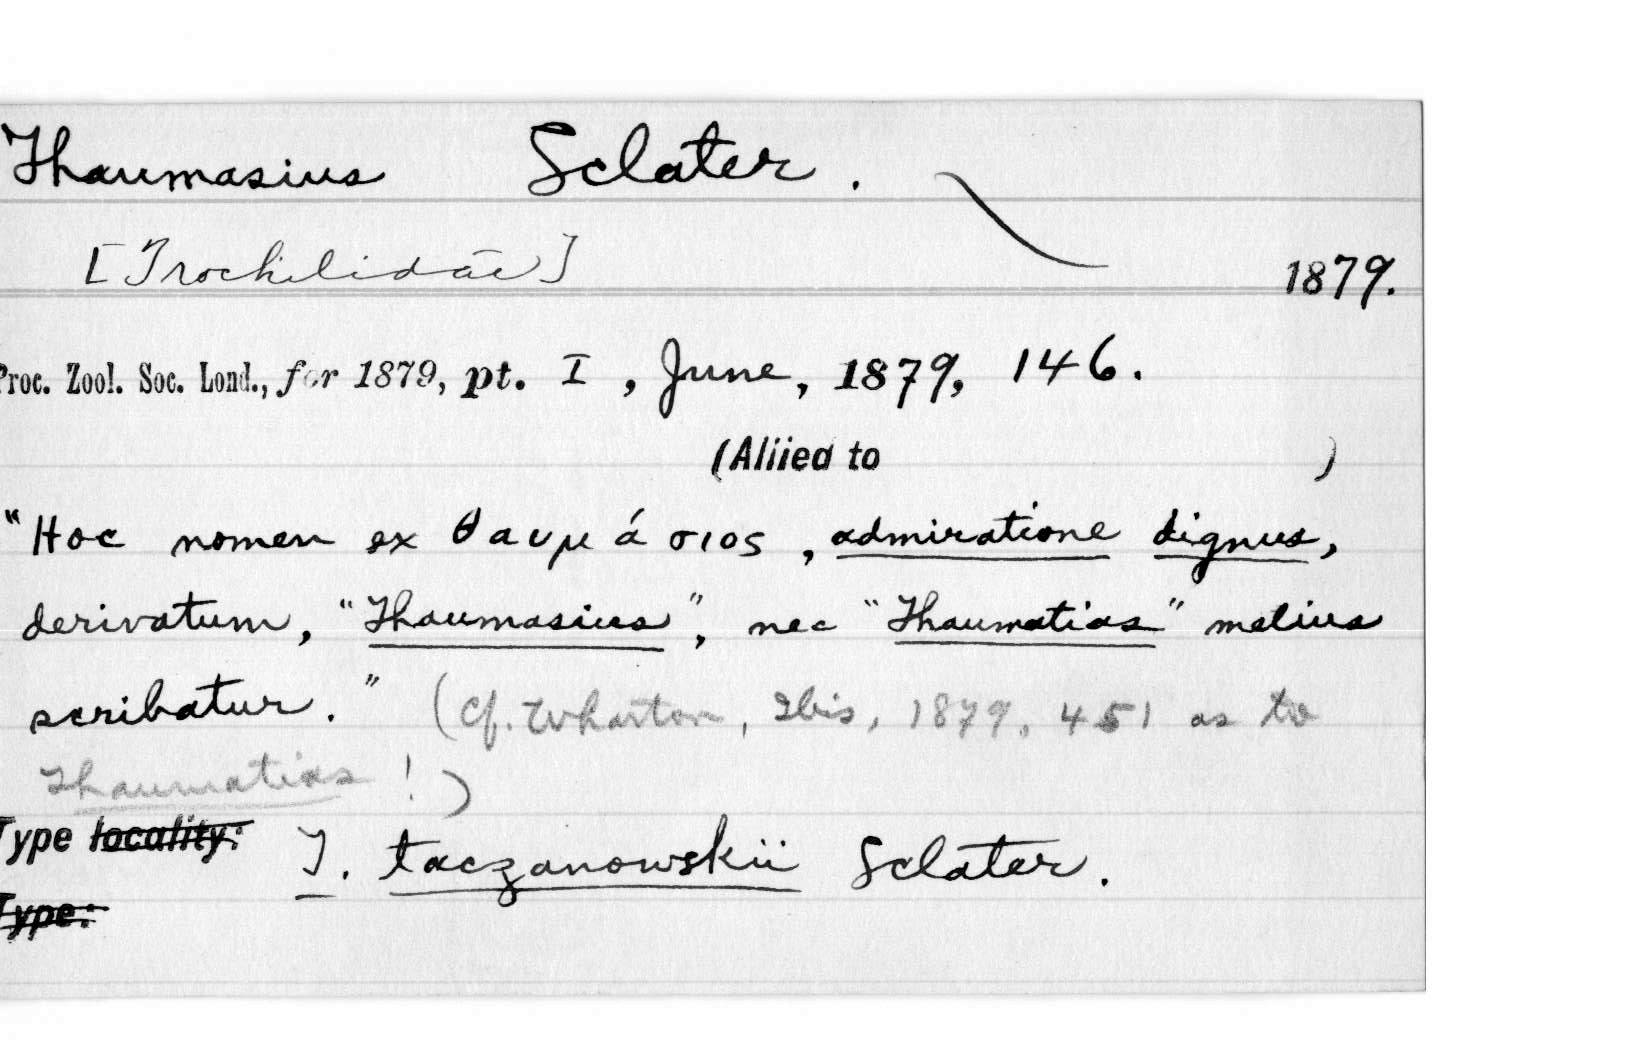 Thaumasius Sclater.
[Trochilidae]
1879.
Proc. Zool. Soc. Lond., for 1879, pt. I, June, 1879, 146.
(Allied to )
"Hoc nomen ex θαυμάσιος, admiratione dignus,
derivatum, "Thaumasius", nec "Thaumatias" melius
scribatur." (Cf. Wharton, Ibis, 1879, 451 as to
Thaumatias!)
Type locality: T. taczanowskii Sclater.
Type: